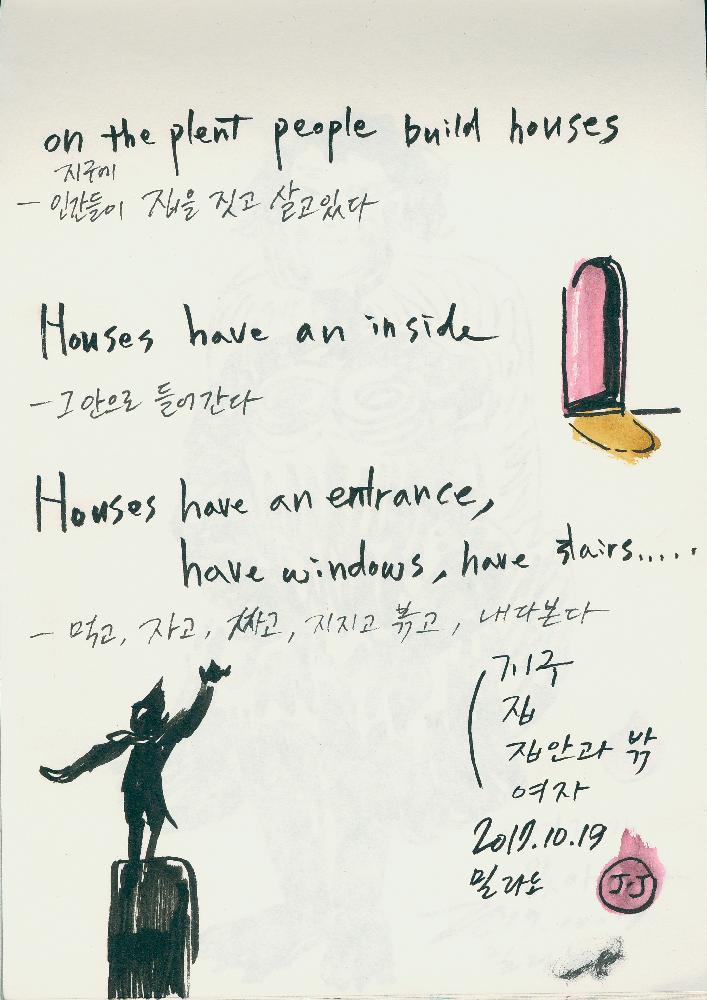 on the plent people build houses
지구에
– 인간들이 집을 짓고 살고있다
Houses have an inside
– 그안으로 들어간다
Houses have an entrance,
have windows, have stairs.....
– 먹고, 자고, 싸고, 지지고 볶고, 내다본다
지구
집
집안과 밖
여자
2017.10.19
밀라노
J.J